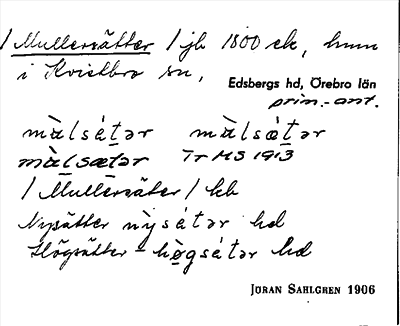 / Mullersätter / jb 1500 ek, hmn
i Kvistbro sn,
Edsbergs hd, Örebro län
prim.-ant.
mὰlsétər mὰlsætər
mὰlsætər TrMS 1913
/ Mullersäter / kb
Nysätter nỳsétər hd
Högsätter - hǿgsétər hd
JÖRAN SAHLGREN 1906